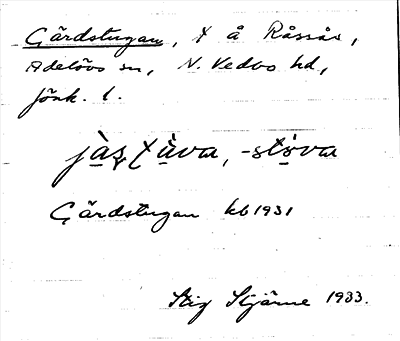 Gärdstugan, × å Råssås,
Adelövs sn, N. Vedbo hd,
Jönk. l.
jàs̱tu̇̀va, -stȯva
Gärdstugan kb 1931
Stig Stjärne 1933.